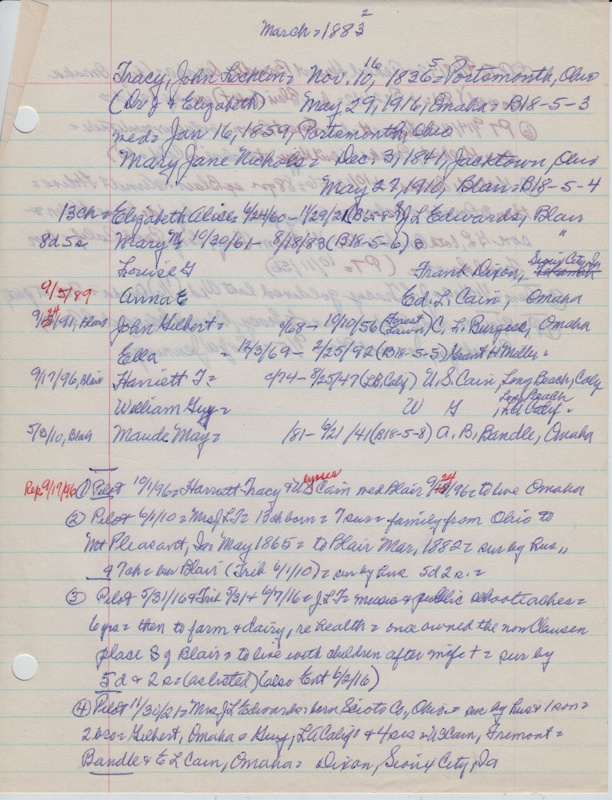 March = 1883 2
Tracy, John Locklin = Nov. 10, 16 1836 5 = Portsmonth, Ohio
(Dv. J & Elizabeth) May 29, 1916, Omaha = B18-5-3
med = Jan 16, 1859, Portsmonth, Ohio
Mary Jane Nichols = Dec. 3, 1841, Jacktown, Ohio
May 27, 1910, Blair = B18-5-4
13ch = Elizabeth Alice 6/24/60 - 1/29/21 J L Edwards, Blair
8d 5s Mary M 10/30/61 - 8/18/83 (B18-5-6) "
Louise G Frank Dixon, Sioux City, Ia
9/5/89 Anna E Ed. L. Cain, Omaha
9/24/91, Blair John Gilbert = 4/68 - 10/10/56 (Forest Lawn) C. L. Burgess, Omaha
Ella = 12/3/69 - 2/25/92 (B18-5-5) Grant H Miller =
9/17/96, Blair Harriett T = 6/74 - 8/25/47 (L.B. Caly) U.S. Cain, Long Beach, Caly
William Guy = W G, Long Beach, LA Caly =
5/3/10, Blair Maude May = /81 - 6/21/41 (B18-5-8) A. B. Bandle, Omaha
Rep: 9/17/96 ① Pilot 10/1/96 = Harriett Tracy & Ulysses S Cain med Blair 9/24/96 = to live Omaha
② Pilot 6/1/10 = Mrs J L T = 13ch born = 7 sur = family from Ohio to
Mt Pleasant, Ia May 1865 = to Blair Mar, 1882 = sur by hus,
& 7ch = bur Blair (Trib 6/1/10) = sur by hus 5d 2s. =
③ Pilot 5/31/16 & Trib 5/31 & 6/7/16 = J L T = music & public school teacher =
6 yrs = then to farm & dairy, re health = once owned the now Clausen
place S of Blair = to live with children after wife + = sur by
5d & 2s = (as listed) (also Ent 6/2/16)
④ Pilot 11/30/21 = Mrs J L Edwards = born Scioto Co, Ohio = sur by hus & 1 son =
2 bros = Gilbert, Omaha & Guy, LA Calif & 4 sis = U.S. Cain, Fremont =
Bandle & E L Cain, Omaha = Dixon, Sioux City, Ia